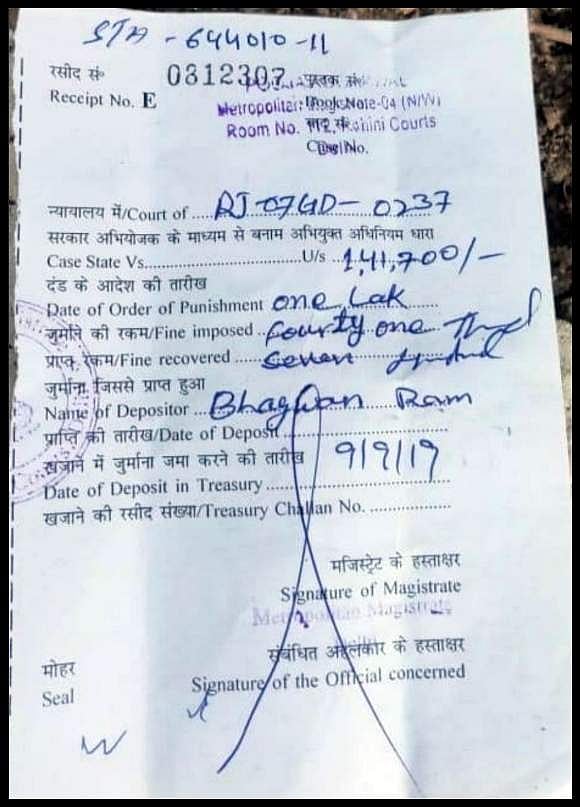 STA - 644010-11
रसीद सं० 0312307 पुस्तक सं०
Receipt No. E
Metropolitan Book No. -04 (N/W)
Room No. 112, Rohini Courts
Case No.
न्यायालय में/Court of RJ-07GD-0237
सरकार अभियोजक के माध्यम से बनाम अभियुक्त अधिनियम धारा
Case State Vs. U/s 1,41,700/-
दंड के आदेश की तारीख
Date of Order of Punishment one Lak
जुर्माने की रकम/Fine imposed fourty one
प्राप्त रकम/Fine recovered seven
जुर्माना जिससे प्राप्त हुआ
Name of Depositor Bhagwan Ram
प्राप्ति की तारीख/Date of Deposit
खजाने में जुर्माना जमा करने की तारीख 9/9/19
Date of Deposit in Treasury
खजाने की रसीद संख्या/Treasury Challan No.
मजिस्ट्रेट के हस्ताक्षर
Signature of Magistrate
Metropolitan Magistrate
संबंधित अहलकार के हस्ताक्षर
मोहर
Signature of the Official concerned
Seal